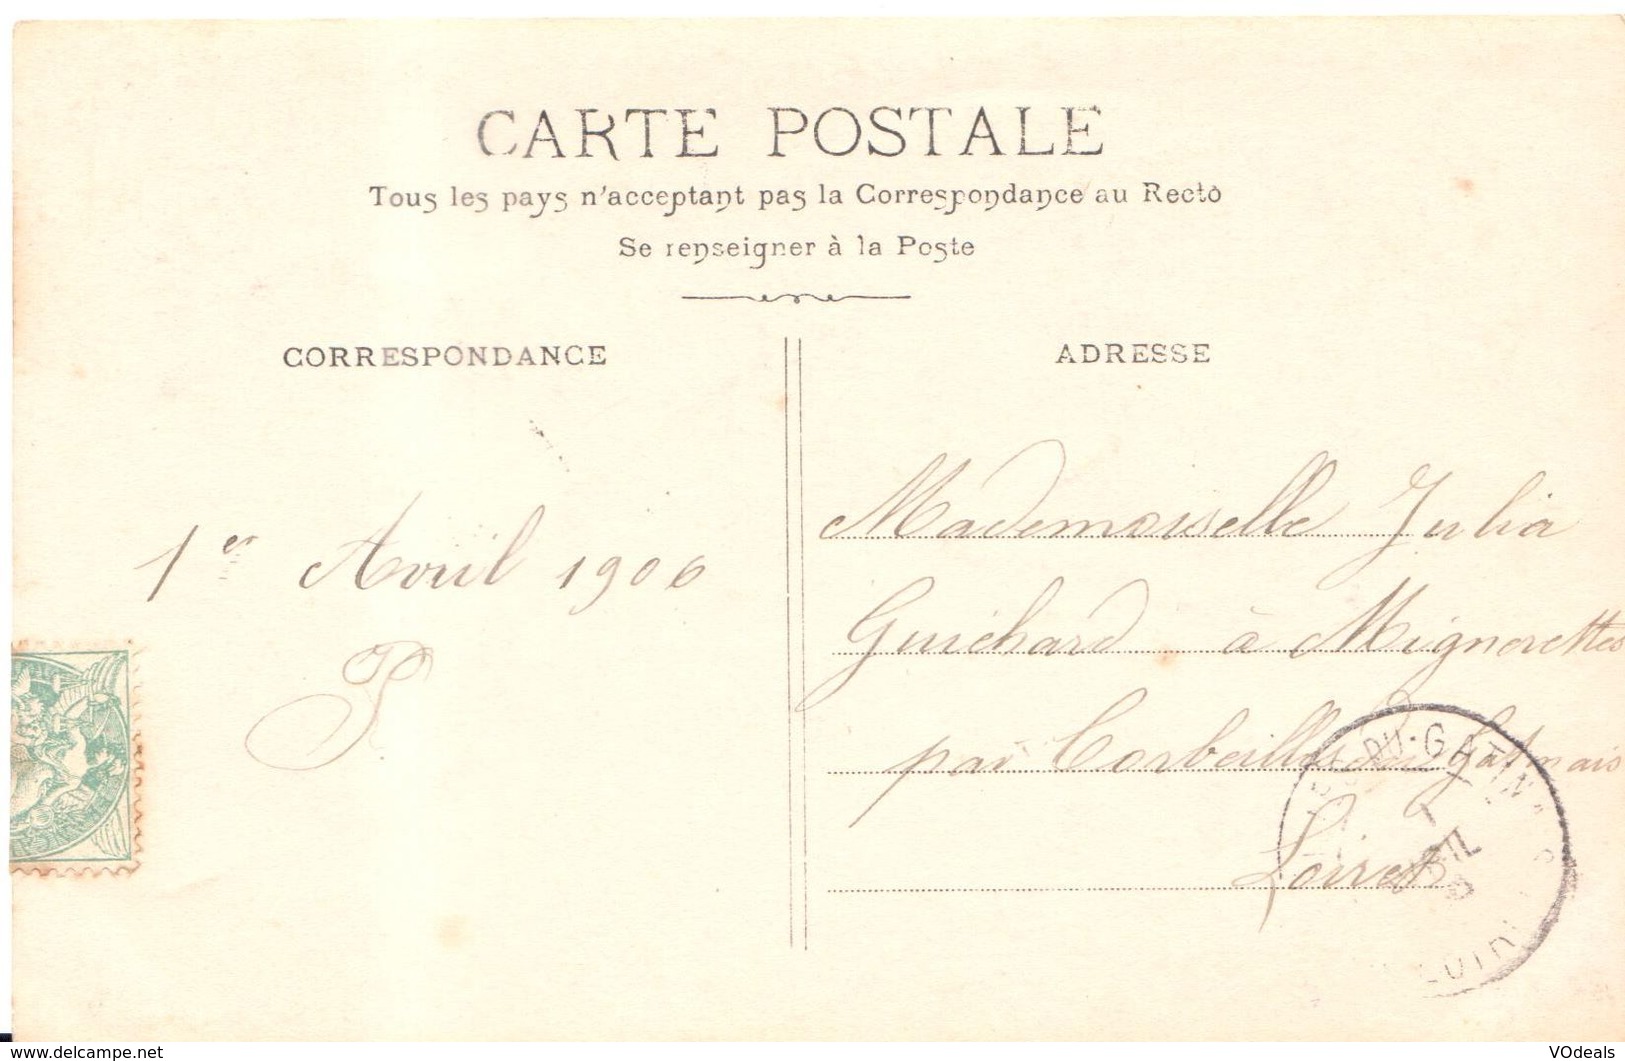 CARTE POSTALE
Tous les pays n'acceptant pas la Correspondance au Recto
Se renseigner à la Poste
CORRESPONDANCE
ADRESSE
1er Avril 1906
P
Mademoiselle Julia
Guichard à Mignerettes
par Corbeilles du Gatinais
Loiret
DU-GATIN
www.delcampe.net
VOdeals